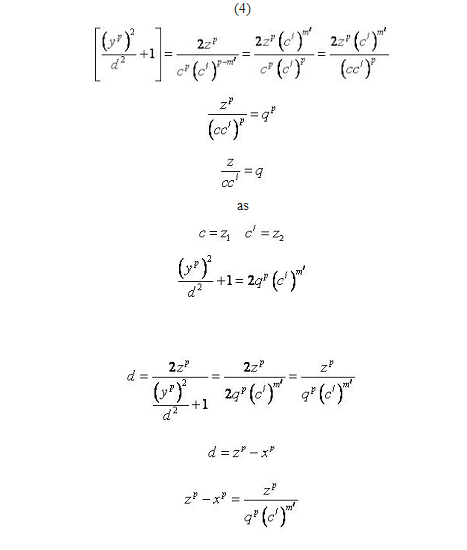 (4)
[(y^p)^2/d^2 +1] = 2z^p/(c^p(c^/)^(p-m')) = 2z^p(c^/)^m'/(c^p(c^/)^p) = 2z^p(c^/)^m'/(cc^/)^p
z^p/(cc^/)^p = q^p
z/cc^/ = q
as
c = z_1 c^/ = z_2
(y^p)^2/d^2 +1 = 2q^p(c^/)^m'
d = 2z^p/((y^p)^2/d^2 +1) = 2z^p/(2q^p(c^/)^m') = z^p/(q^p(c^/)^m')
d = z^p − x^p
z^p − x^p = z^p/(q^p(c^/)^m')